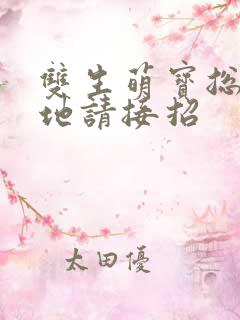 雙生萌寶総
地請接招
太田優